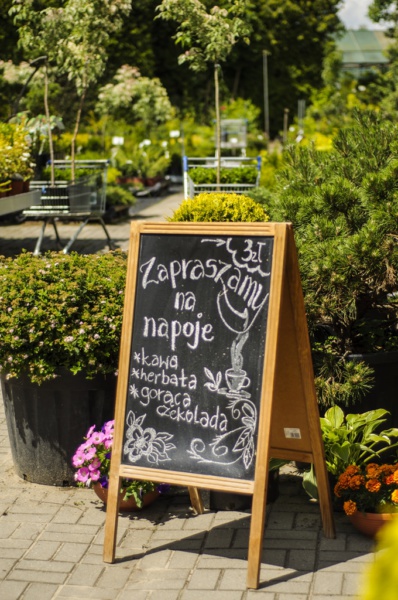 3zł
Zapraszamy
na
napoje
*kawa
*herbata
*gorąca
czekolada